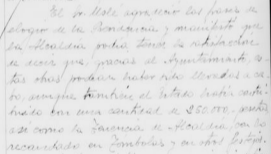 El Sr. Molé agradeció las frases de
elogio de la Presidencia y manifestó que
la Alcaldía podía tener la satisfacción
de decir que, gracias al Ayuntamiento, es-
tas obras podían haber sido llevadas a ca-
bo, aunque también el Estado había contri-
buido con una cantidad de 250.000,- pesetas
así como la Tenencia de Alcaldía con lo
recaudado en Tómbolas y en otros festejos.